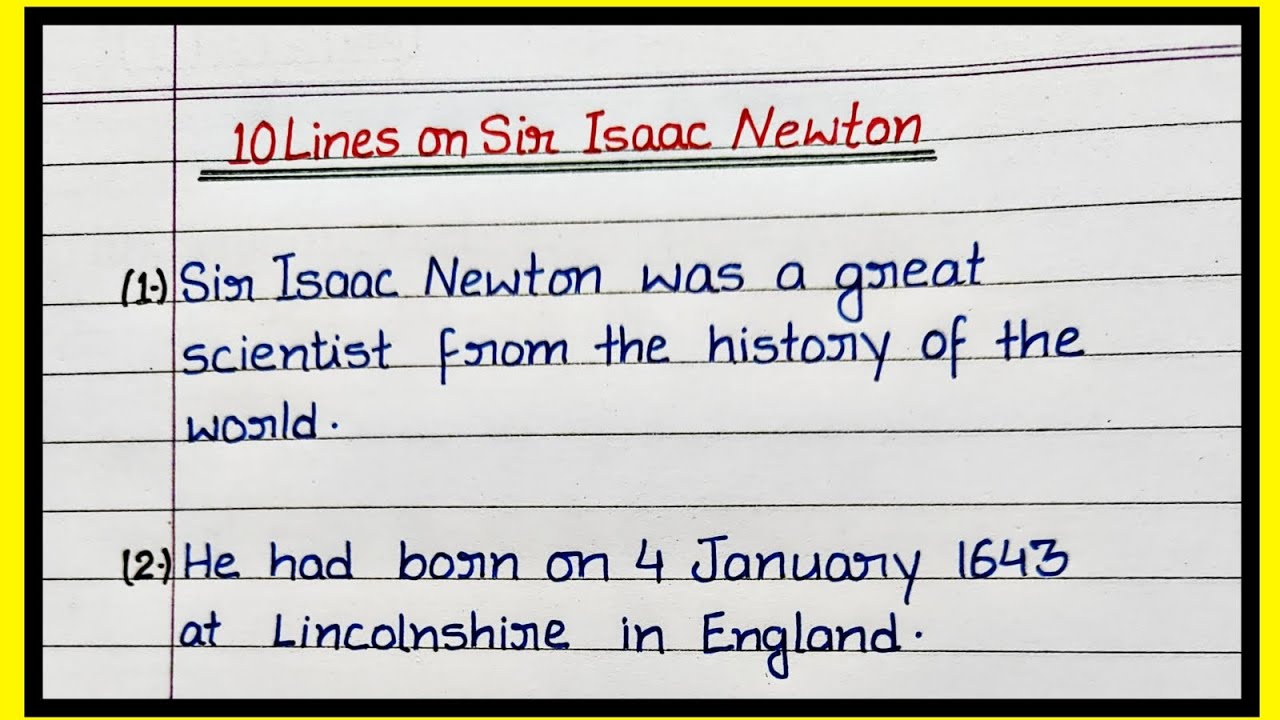 10 Lines on Sir Isaac Newton
(1.) Sir Isaac Newton was a great
scientist from the history of the
world.
(2.) He had born on 4 January 1643
at Lincolnshire in England.